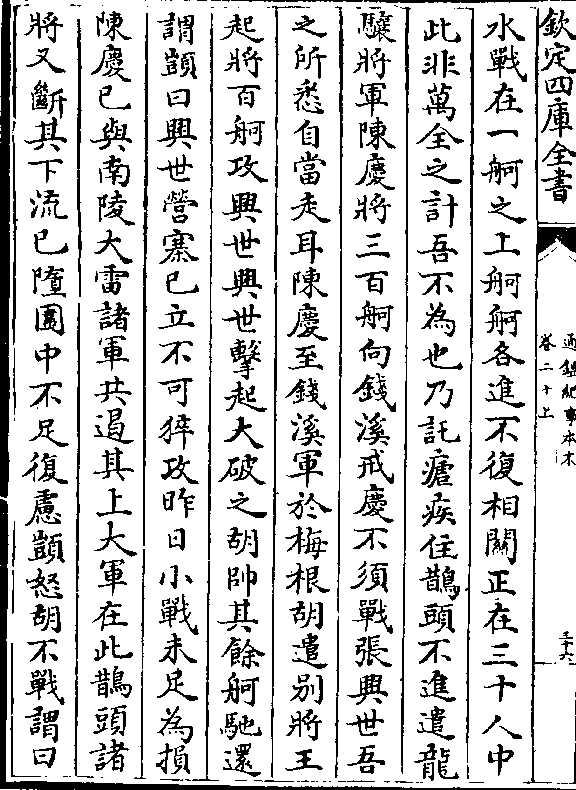 欽定四庫全書
通鑑紀事本末
卷二十上
三十六
水戰在一舸之上舸舸各進不復相關正在三十人中
此非萬全之計吾不為也乃託瘧疾住鵲頭不進遣龍
驤將軍陳慶將三百舸向錢溪戒慶不須戰張興世吾
之所悉自當走耳陳慶至錢溪軍於梅根胡遣别將王
起將百舸攻興世興世擊起大破之胡帥其餘舸馳還
謂顗曰興世營寨已立不可猝攻昨日小戰未足為損
陳慶已與南陵大雷諸軍共遏其上大軍在此鵲頭諸
將又斷其下流已墮圍中不足復慮顗怒胡不戰謂曰